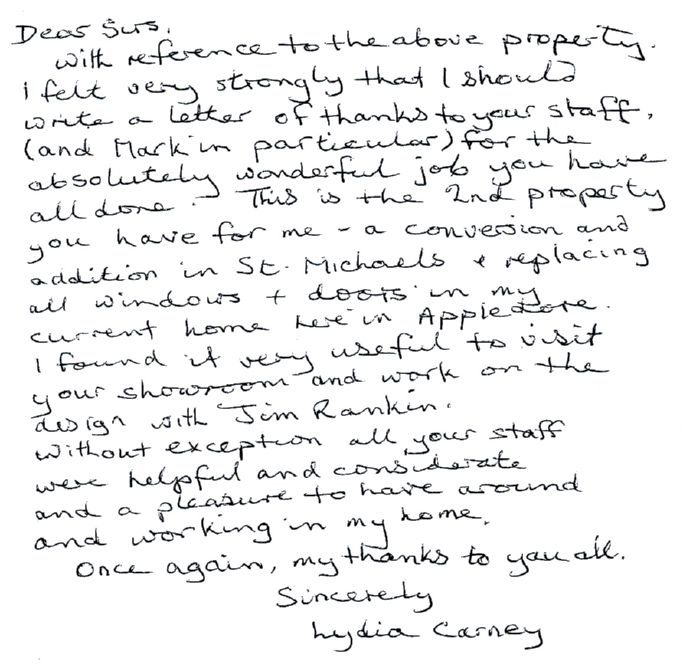 Dear Sirs,
With reference to the above property.
I felt very strongly that I should
write a letter of thanks to your staff,
(and Mark in particular) for the
absolutely wonderful job you have
all done. - This is the 2nd property
you have for me - a conversion and
addition in St. Michaels + replacing
all windows + doors in my
current home here in Appledore.
I found it very useful to visit
your showroom and work on the
design with Jim Rankin.
Without exception all your staff
were helpful and considerate
and a pleasure to have around
and working in my home.
Once again, my thanks to you all.
Sincerely
Lydia Carney